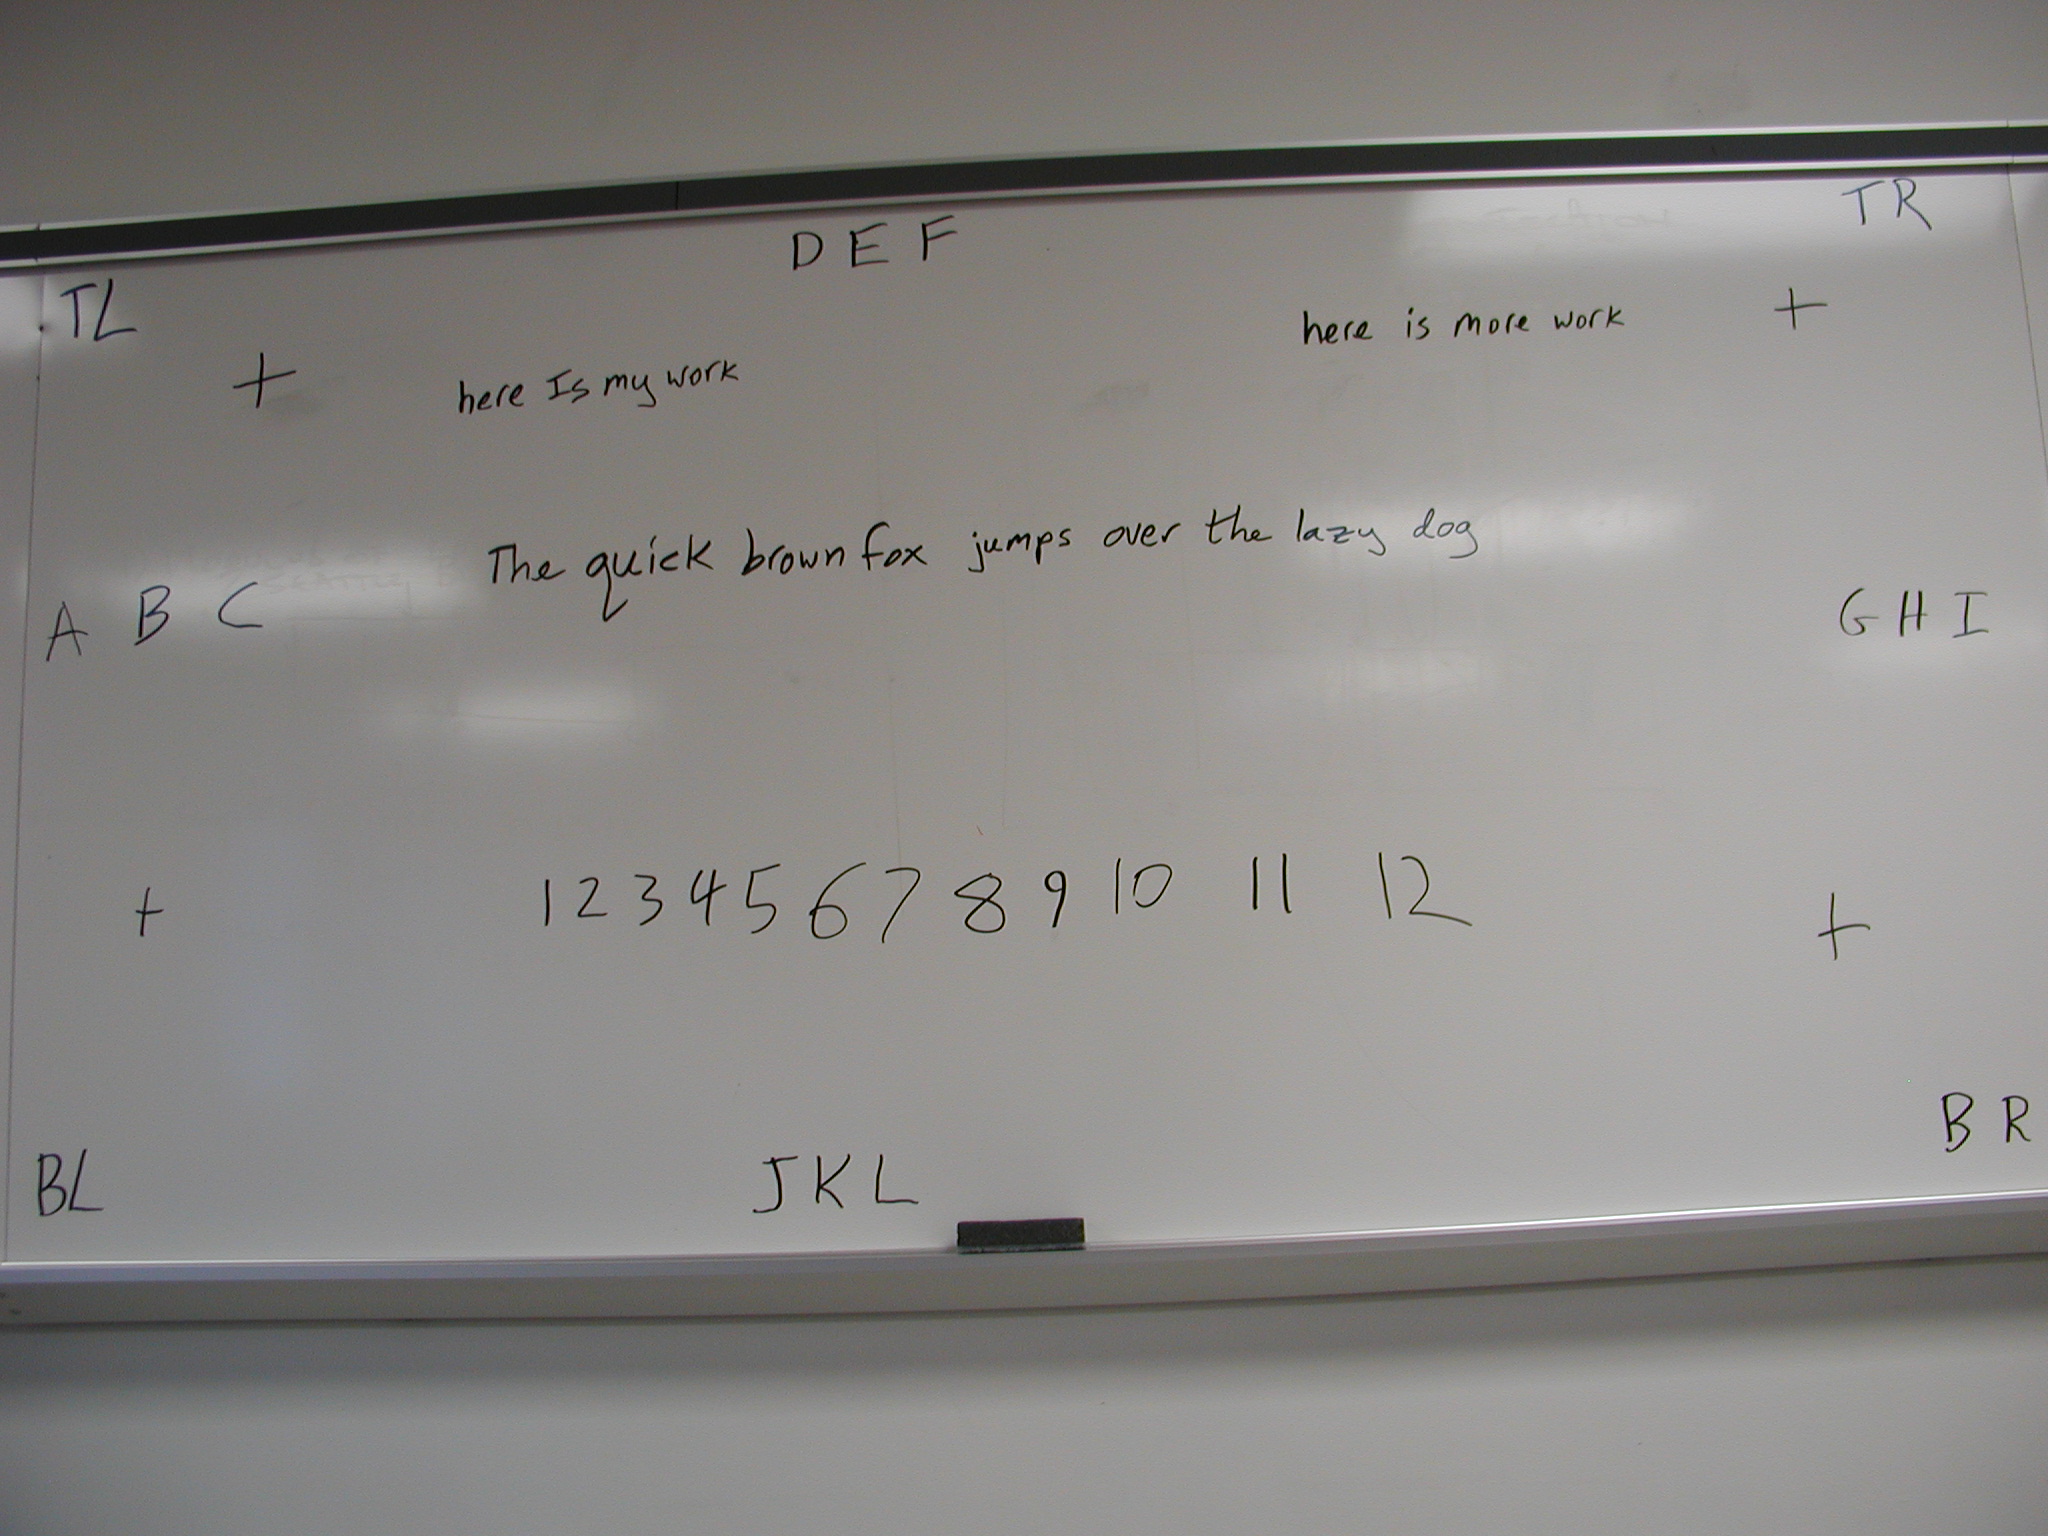 TR
D E F
TL
+ here Is my work here is more work +
The quick brown fox jumps over the lazy dog
A B C G H I
+ 1 2 3 4 5 6 7 8 9 10 11 12 +
B R
BL J K L